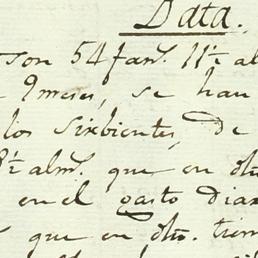 Data.
son 54 fan.s 11½ al
9 meses, se han
los Sirbientes, de
8½ alm.s que en dho.
en el gasto diar
que en dho. tiem